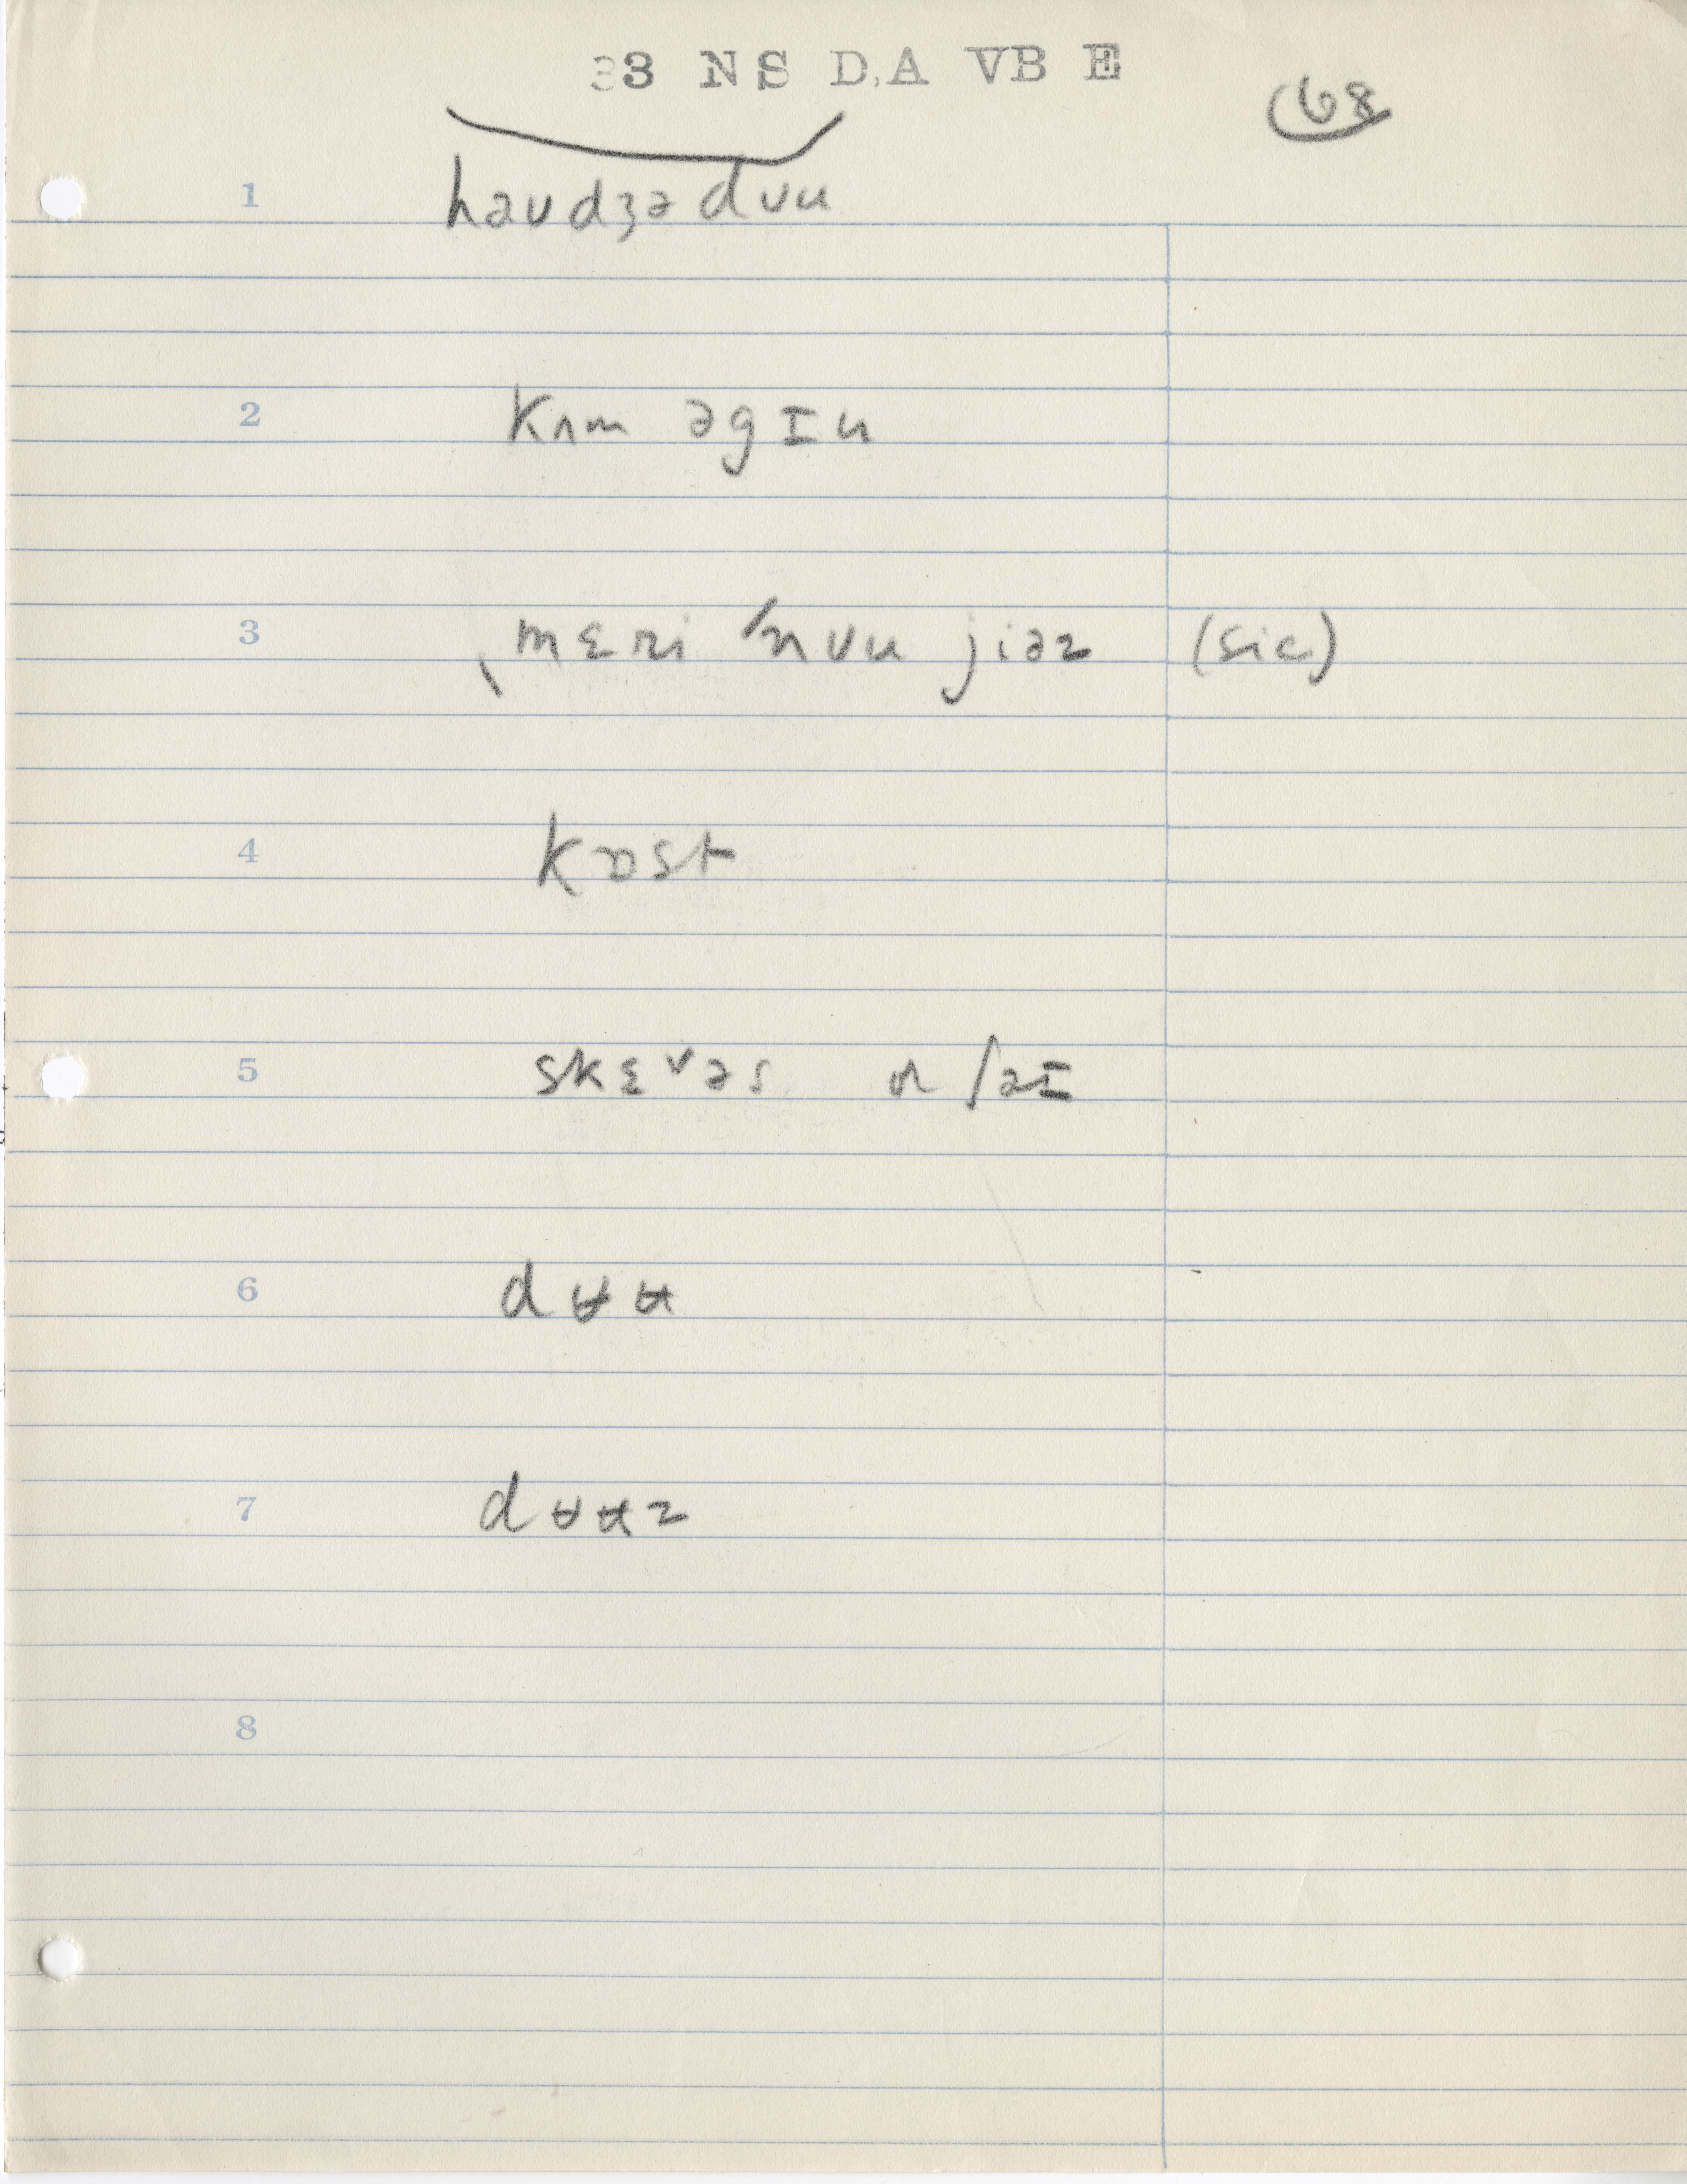 33 NS D,A VB E
68
1 həʊdʒədʊu
2 kʌm əgɪn
3 ˌmɛri ˈnʊu jiəz (sic)
4 kɒst
5 skɛvəs or ʃəɪ
6 dʊ̵ʉ
7 dʊ̵ʉz
8